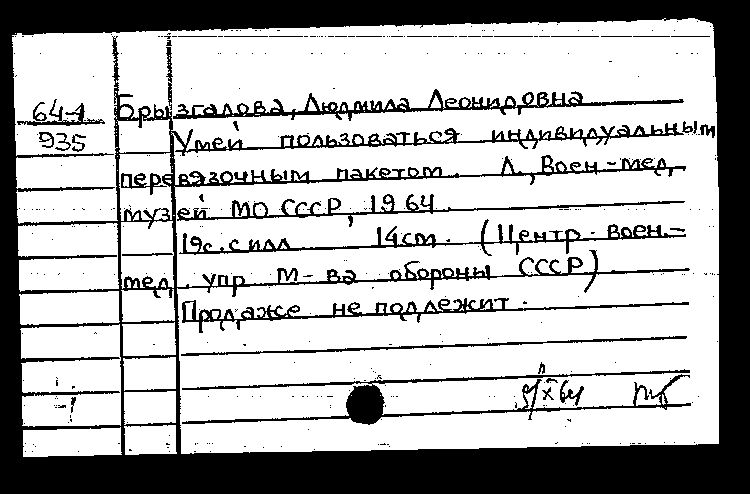 64-1 Брызгалова, Людмила Леонидовна
935 Умей пользоваться индивидуальным
перевязочным пакетом. Л., Воен-мед.
музей МО СССР, 1964.
19с. с илл 14см. (Центр. воен.-
мед. упр М-ва обороны СССР)
Продаже не подлежит.